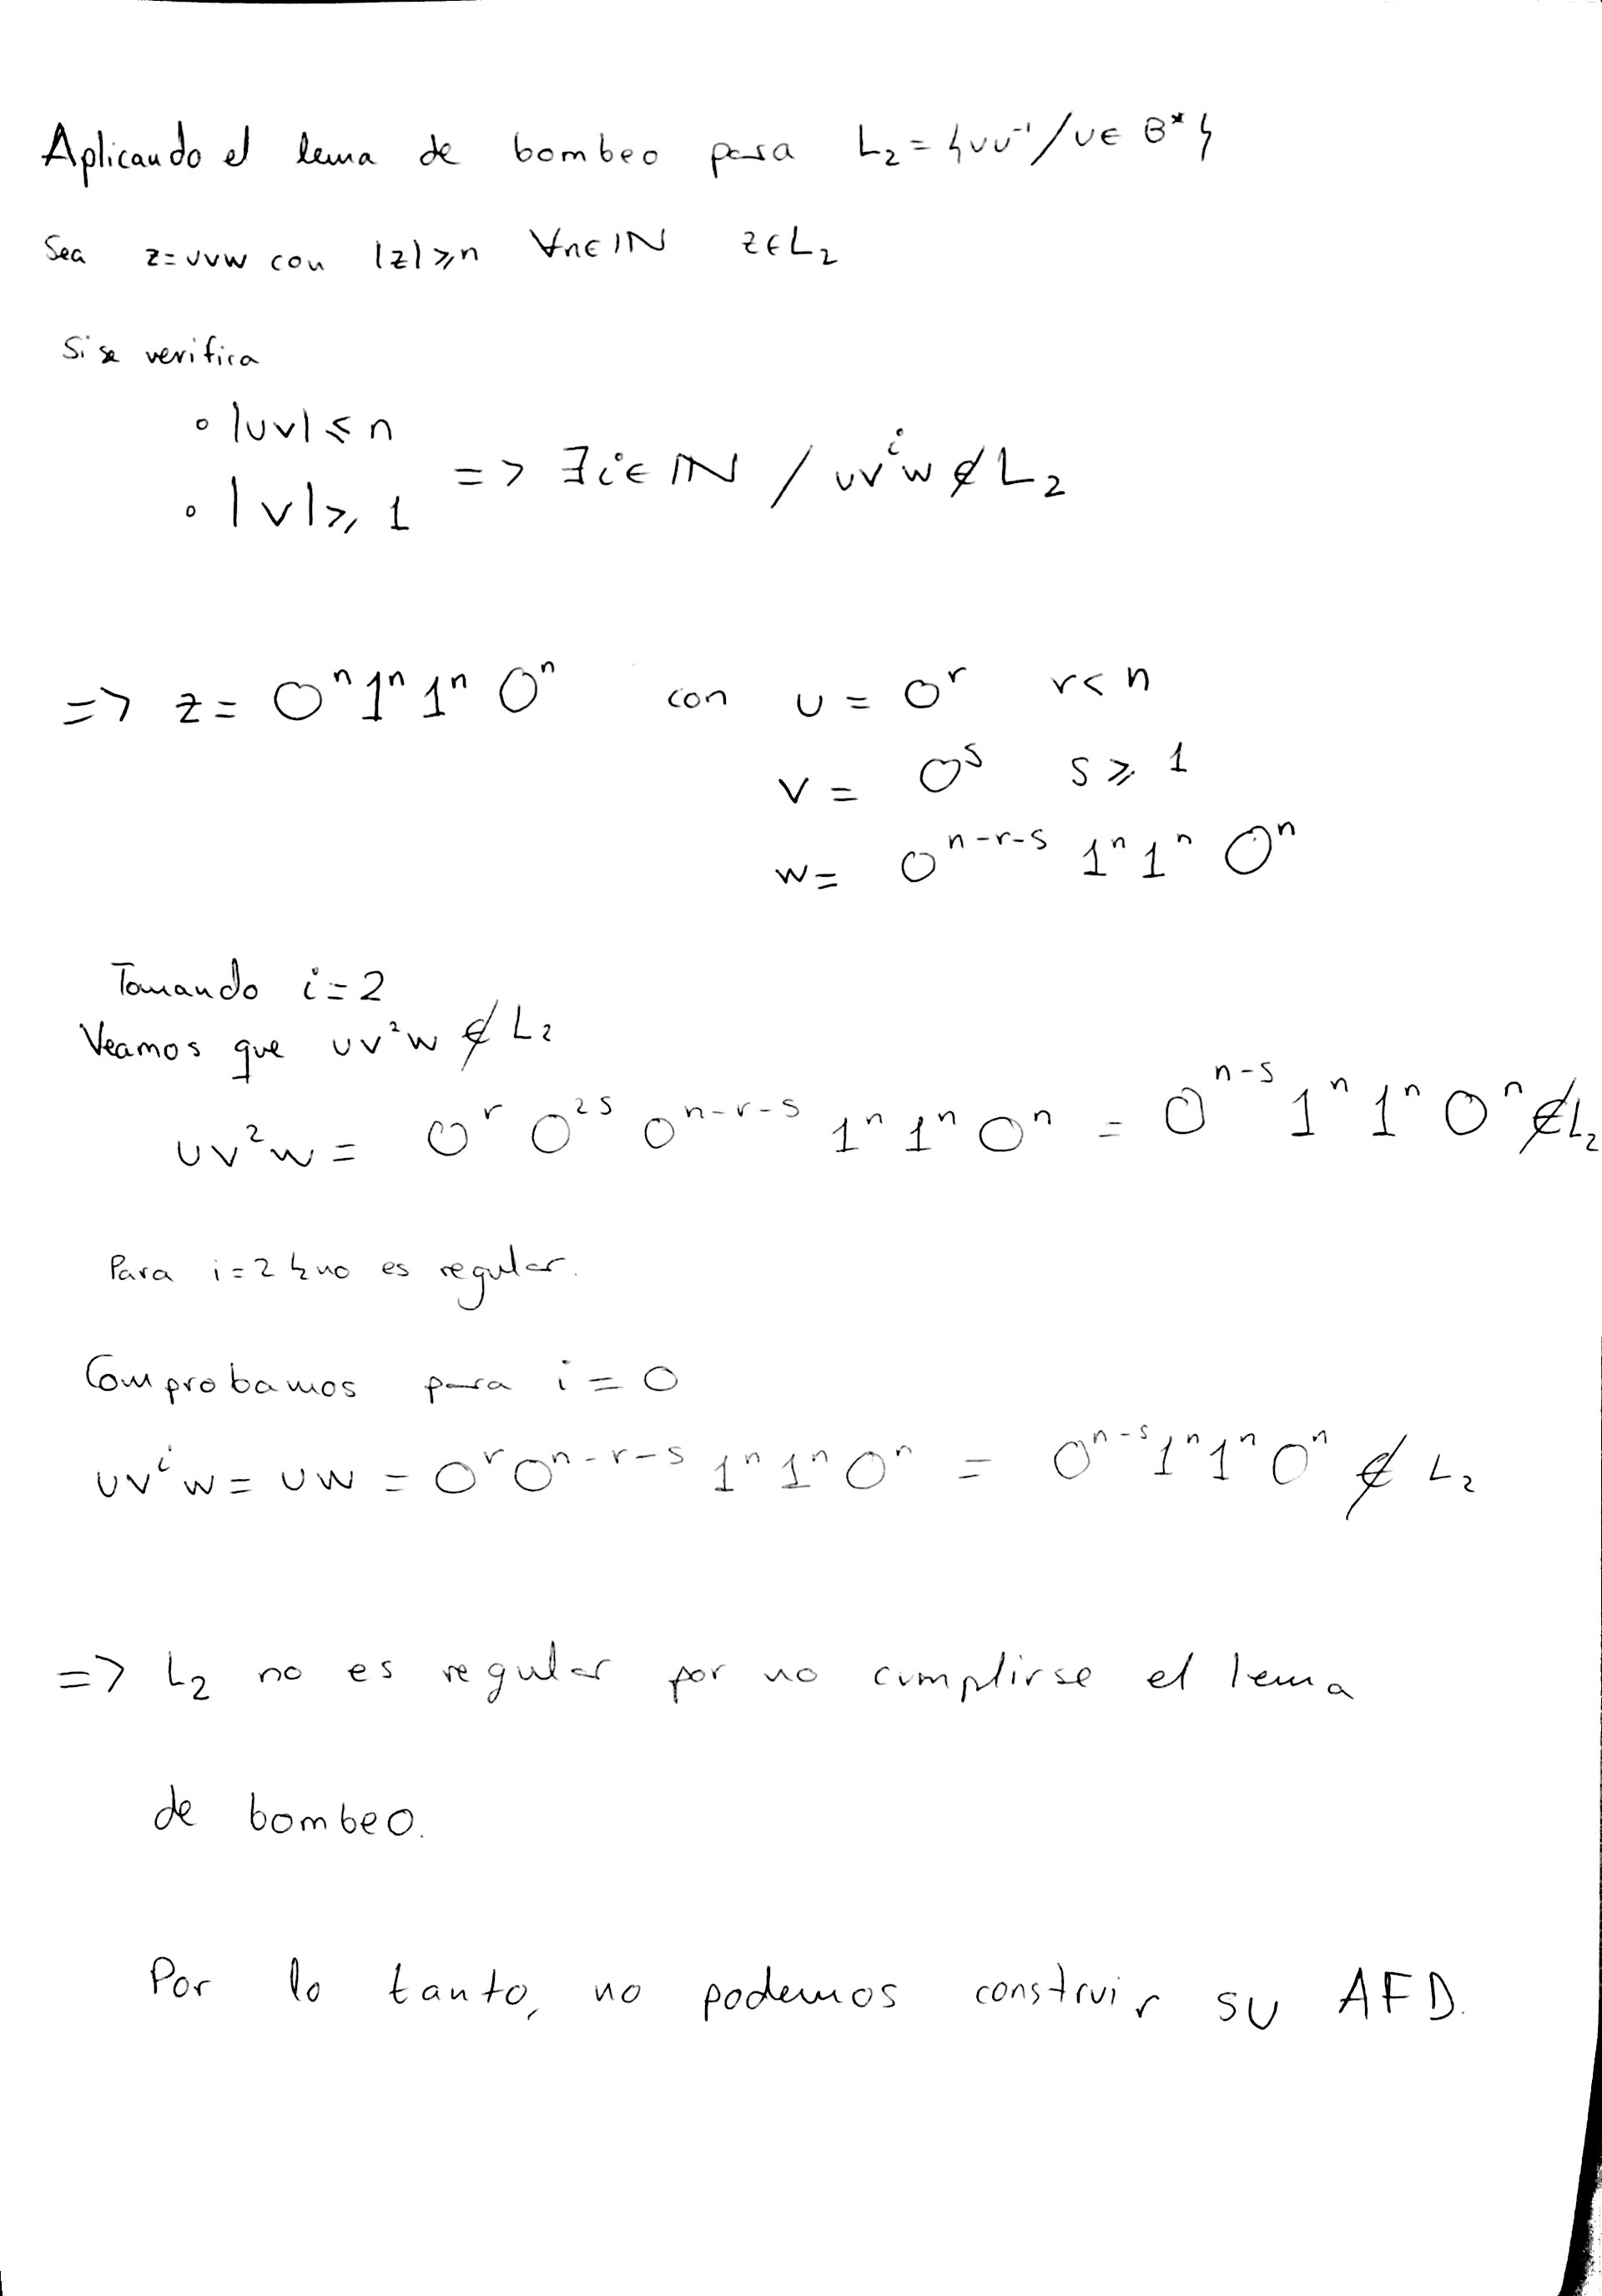 Aplicando el lema de bombeo para L₂ = {uu⁻¹/u∈ B*}
Sea z=uvw con |z|⩾n ∀n∈ℕ z∈L₂
Si se verifica
∘ |uv|⩽n
∘ |v|⩾1 => ∃i∈ℕ / uvⁱw∉L₂
=> z= 0ⁿ1ⁿ1ⁿ0ⁿ con u = 0ʳ r<n
v = 0ˢ s⩾1
w= 0ⁿ⁻ʳ⁻ˢ 1ⁿ1ⁿ0ⁿ
Tomando i=2
Veamos que uv²w ∉ L₂
uv²w = 0ʳ 0²ˢ 0ⁿ⁻ʳ⁻ˢ 1ⁿ1ⁿ0ⁿ = 0ⁿ⁻ˢ 1ⁿ1ⁿ0ⁿ∉L₂
Para i=2 L₂ no es regular.
Comprobamos para i=0
uvⁱw = uw = 0ʳ0ⁿ⁻ʳ⁻ˢ 1ⁿ1ⁿ0ⁿ = 0ⁿ⁻ˢ1ⁿ1ⁿ0ⁿ ∉ L₂
=> L₂ no es regular por no cumplirse el lema
de bombeo.
Por lo tanto, no podemos construir su AFD.